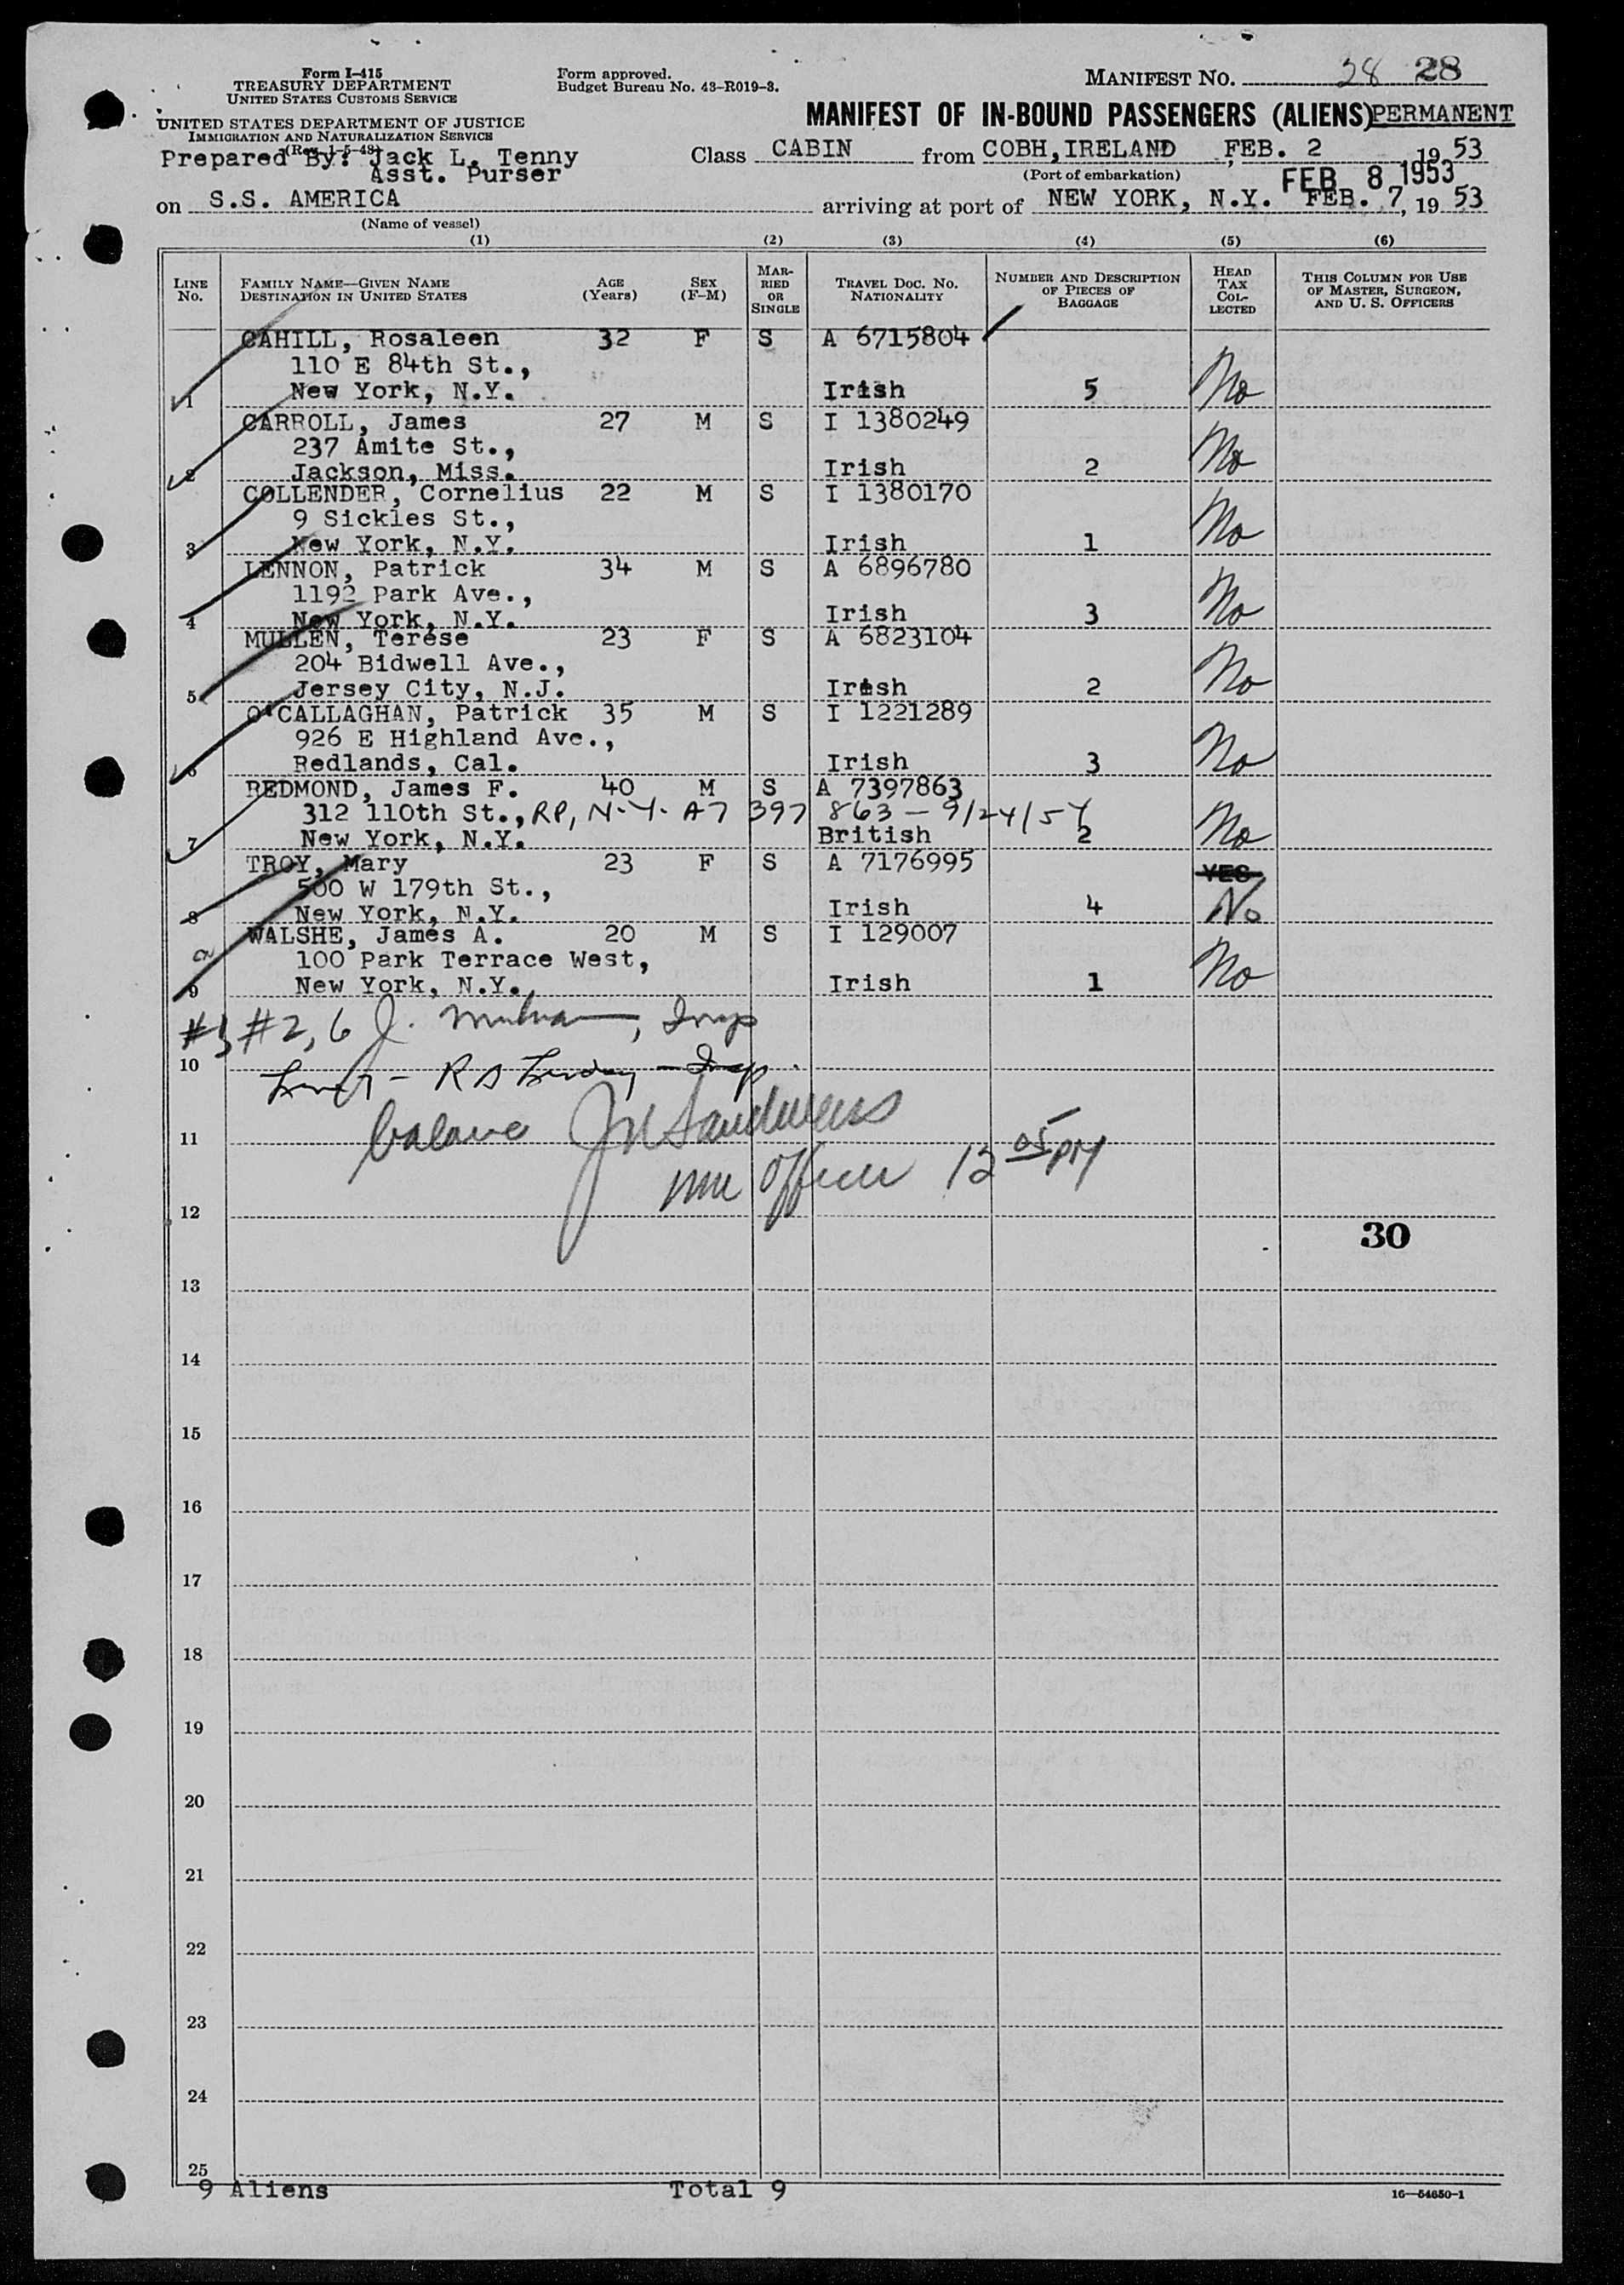 Form I-415
TREASURY DEPARTMENT
UNITED STATES CUSTOMS SERVICE
UNITED STATES DEPARTMENT OF JUSTICE
IMMIGRATION AND NATURALIZATION SERVICE
(Rev. 1-5-48)
Form approved.
Budget Bureau No. 43-R019-3.
MANIFEST NO. 28 28
MANIFEST OF IN-BOUND PASSENGERS (ALIENS) PERMANENT
Prepared By: Jack L. Tenny
Asst. Purser
Class CABIN from COBH, IRELAND, FEB. 2 1953
(Port of embarkation)
FEB 8 1953
on S.S. AMERICA arriving at port of NEW YORK, N.Y. FEB. 7, 1953
(Name of vessel)
(1) (2) (3) (4) (5) (6)
LINE NO. FAMILY NAME—GIVEN NAME DESTINATION IN UNITED STATES AGE (Years) SEX (F-M) MARRIED OR SINGLE TRAVEL DOC. NO. NATIONALITY NUMBER AND DESCRIPTION OF PIECES OF BAGGAGE HEAD TAX COLLECTED THIS COLUMN FOR USE OF MASTER, SURGEON, AND U. S. OFFICERS
CAHILL, Rosaleen 32 F S A 6715804
110 E 84th St.,
1 New York, N.Y. Irish 5 No
CARROLL, James 27 M S I 1380249
237 Amite St.,
2 Jackson, Miss. Irish 2 No
COLLENDER, Cornelius 22 M S I 1380170
9 Sickles St.,
3 New York, N.Y. Irish 1 No
LENNON, Patrick 34 M S A 6896780
1192 Park Ave.,
4 New York, N.Y. Irish 3 No
MULLEN, Terese 23 F S A 6823104
204 Bidwell Ave.,
5 Jersey City, N.J. Irish 2 No
O'CALLAGHAN, Patrick 35 M S I 1221289
926 E Highland Ave.,
6 Redlands, Cal. Irish 3 No
REDMOND, James F. 40 M S A 7397863
312 110th St., RP, N.Y. A7 397 863 - 9/24/54
7 New York, N.Y. British 2 No
TROY, Mary 23 F S A 7176995 YES
500 W 179th St.,
8 New York, N.Y. Irish 4 No
WALSHE, James A. 20 M S I 129007
100 Park Terrace West,
9 New York, N.Y. Irish 1 No
#2, 6 J. Insp
10
balance
11
Officer 12 05 PM
12
30
13
14
15
16
17
18
19
20
21
22
23
24
25
9 Aliens Total 9
16—54650-1